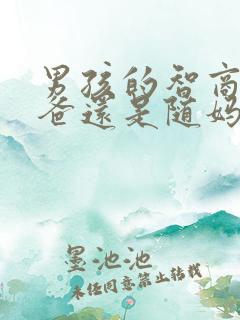 男孩的智商
爸還是随妈
墨池池
未经同意禁止转载